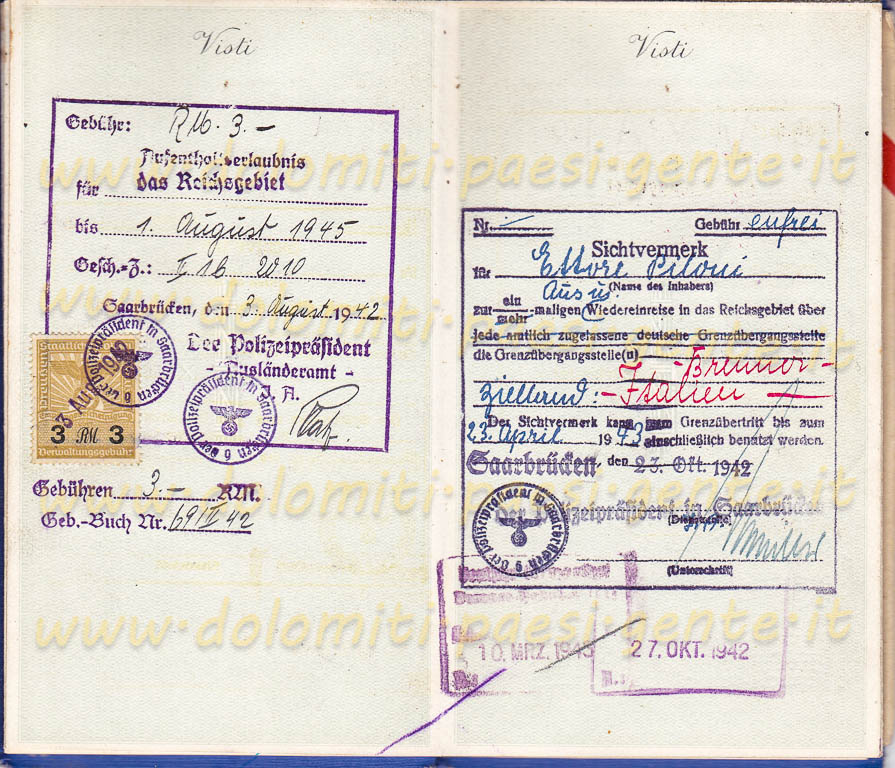 Visti
Gebühr: RM. 3.-
Aufenthaltserlaubnis
für das Reichsgebiet
bis 1. August 1945
Gesch.-Z.: II 16 2010
Saarbrücken, den 3. August 1942
Der Polizeipräsident
- Ausländeramt -
I. A.
Der Polizeipräsident in Saarbrücken 6
3 Aug. 1942
Der Polizeipräsident in Saarbrücken 6
3 RM 3
Verwaltungsgebühr
Gebühren 3.- RM.
Geb.-Buch Nr. 691/II 42
Visti
Nr. - Gebühr enfrei
Sichtvermerk
für Ettore Piloni
(Name des Inhabers)
Aus u.
zur ein/mehr-maligen Wiedereinreise in das Reichsgebiet über
jede amtlich zugelassene deutsche Grenzübergangsstelle
die Grenzübergangsstelle(n) - Brenner -
Zielland: - Italien -
Der Sichtvermerk kann zum Grenzübertritt bis zum
23. April 1943 einschließlich benützt werden.
Saarbrücken, den 23. Okt. 1942
Der Polizeipräsident in Saarbrücken
(Dienststelle)
Der Polizeipräsident in Saarbrücken 9
(Unterschrift)
10. MRZ. 1943
27. OKT. 1942
www.dolomiti-paesi-gente.it
www.dolomiti-paesi-gente.it
www.dolomiti-paesi-gente.it
www.dolomiti-paesi-gente.it